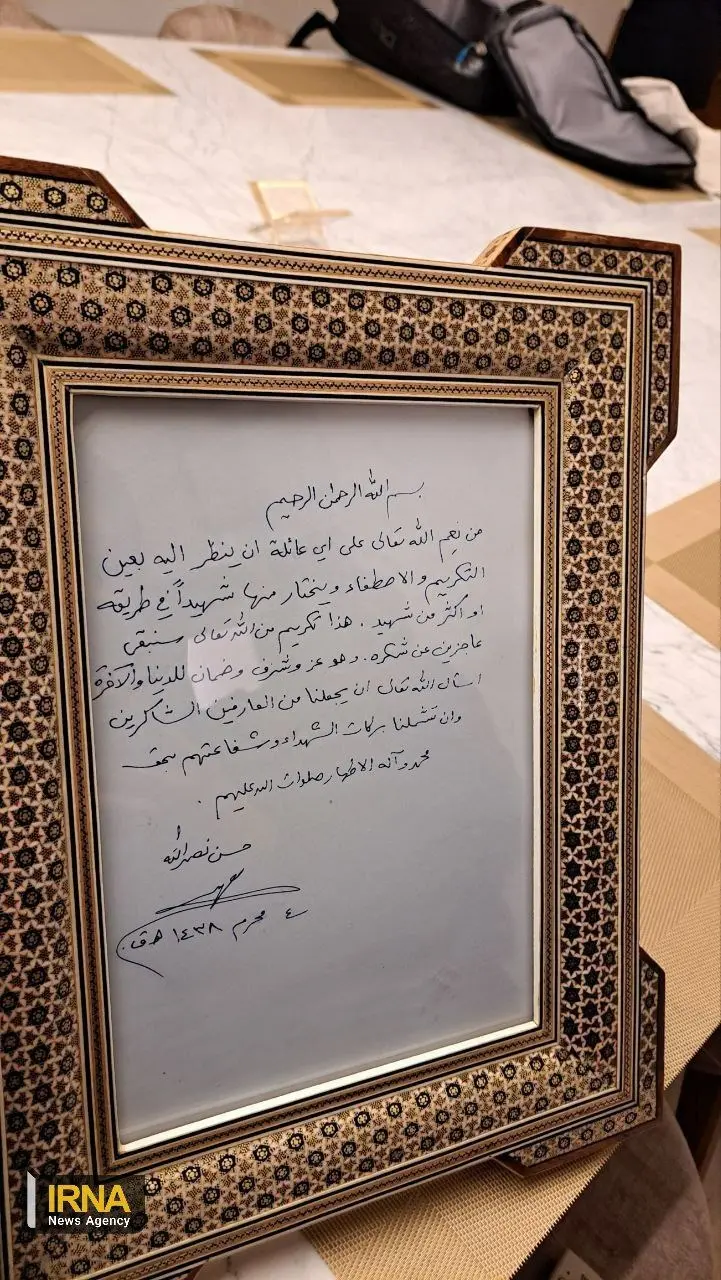 بسم الله الرحمن الرحيم
من نعم الله تعالى على اي عائلة ان ينظر اليه بعين
التكريم والاصطفاء ويختار منها شهيداً في طريقه
او اكثر من شهيد . هذا تكريم من الله تعالى سنبقى
عاجزين عن شكره . وهو عز وشرف وضمان للدنيا والآخرة
اسأل الله تعالى ان يجعلنا من العارفين الشاكرين
وان تشملنا بركات الشهداء وشفاعتهم بحق
محمد وآله الاطهار صلوات الله عليهم .
حسن نصرالله
٤ محرم ١٤٣٨ هـ ق.
IRNA
News Agency